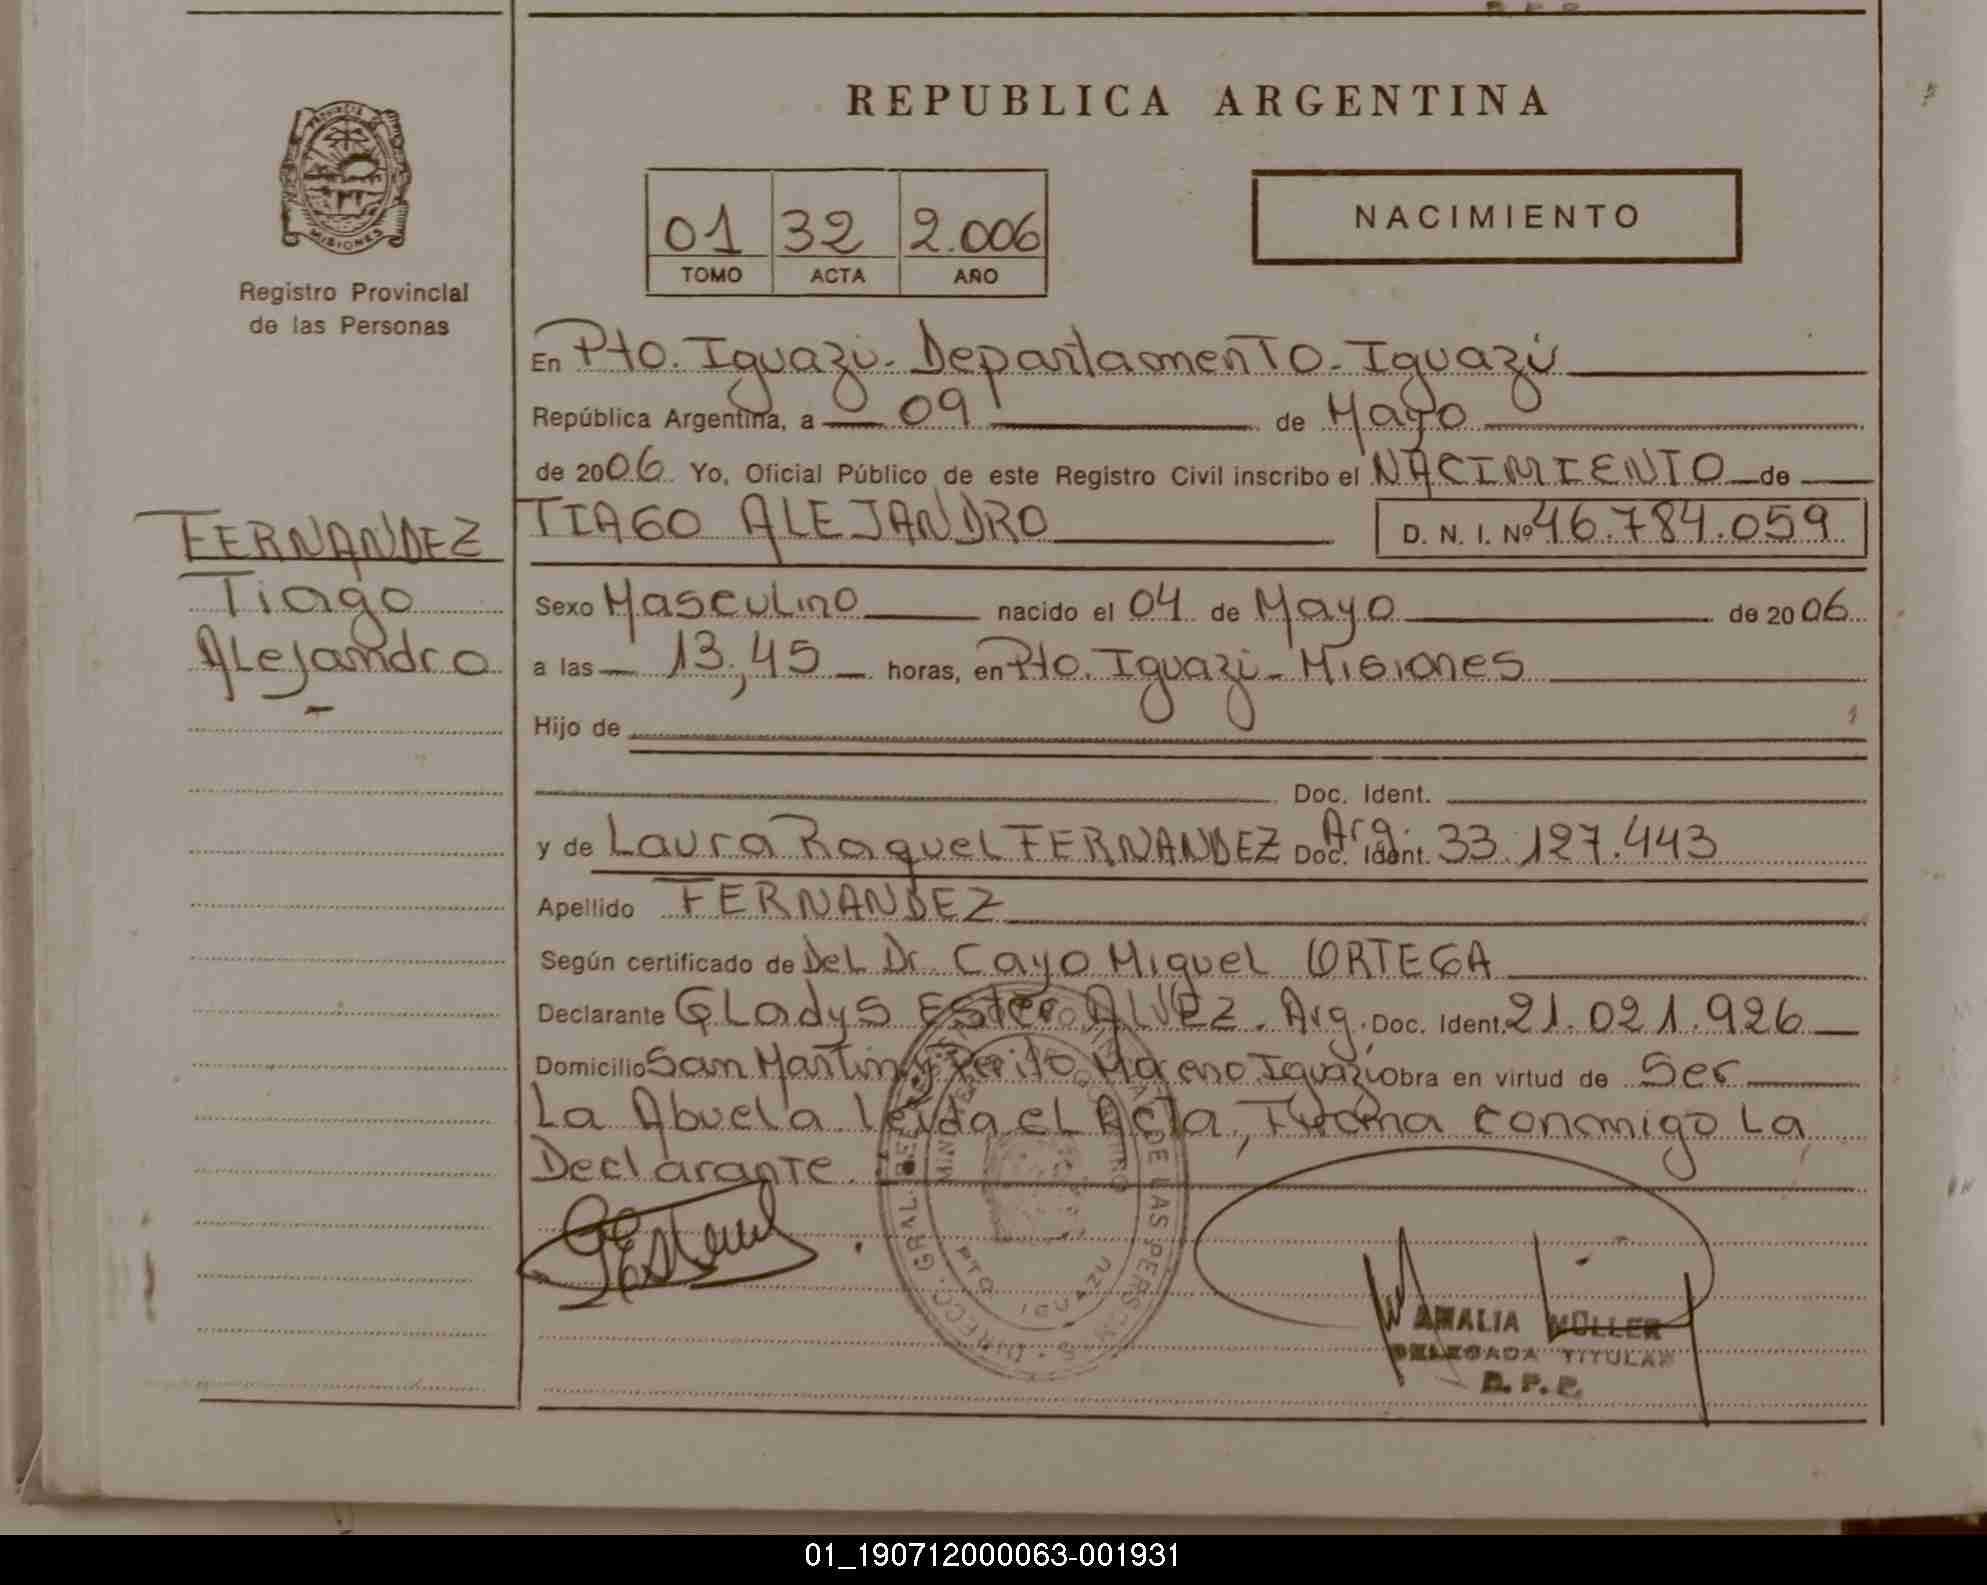 REPUBLICA ARGENTINA
PROVINCIA DE MISIONES
Registro Provincial
de las Personas
01 32 2.006
TOMO ACTA AÑO
NACIMIENTO
En Pto. Iguazú. Departamento. Iguazú
República Argentina, a 09 de Mayo
de 2006. Yo, Oficial Público de este Registro Civil inscribo el NACIMIENTO de
FERNANDEZ
Tiago
Alejandro
TIAGO ALEJANDRO D. N. I. Nº 46.784.059
Sexo Masculino nacido el 04 de Mayo de 2006
a las 13,45 horas, en Pto. Iguazú - Misiones
Hijo de
Doc. Ident.
y de Laura Raquel FERNANDEZ Doc. Ident. Arg. 33.127.443
Apellido FERNANDEZ
Según certificado de Del Dr. Cayo Miguel ORTEGA
Declarante Gladys Ester ALVEZ. Arg. Doc. Ident. 21.021.926
Domicilio San Martin y Perito Moreno Iguazú obra en virtud de Ser
La Abuela. Leida el Acta, Firma conmigo La
Declarante.
PTO IGUAZU
AMALIA MÜLLER
DELEGADA TITULAR
R. P. P.
01_190712000063-001931